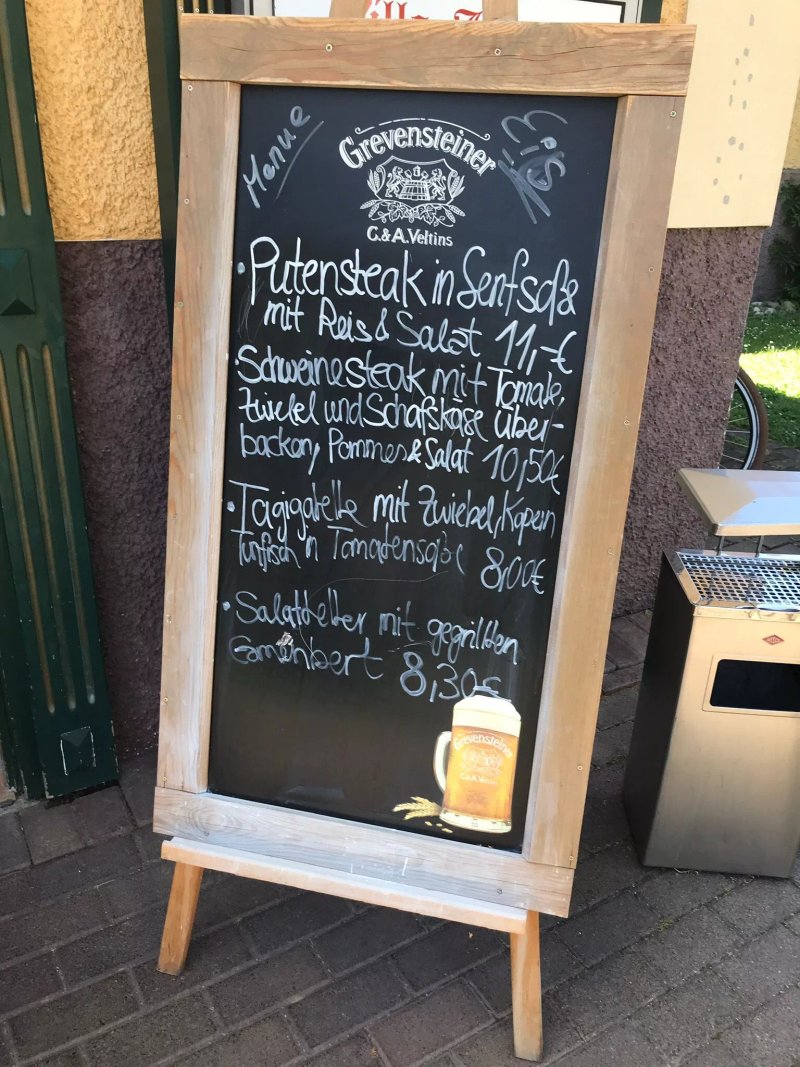 Menue
Grevensteiner
Eis
C.&A. Veltins
• Putensteak in Senfsoße
mit Reis & Salat 11,-€
• Schweinesteak mit Tomate,
Zwiebel und Schafskäse über-
backen, Pommes & Salat 10,50€
• Tagiatelle mit Zwiebel, Kapern
Tunfisch in Tomatensoße 8,00€
• Salatteller mit gegrillten
Camenbert 8,30€
Grevensteiner
C.&A. Veltins
WESCO